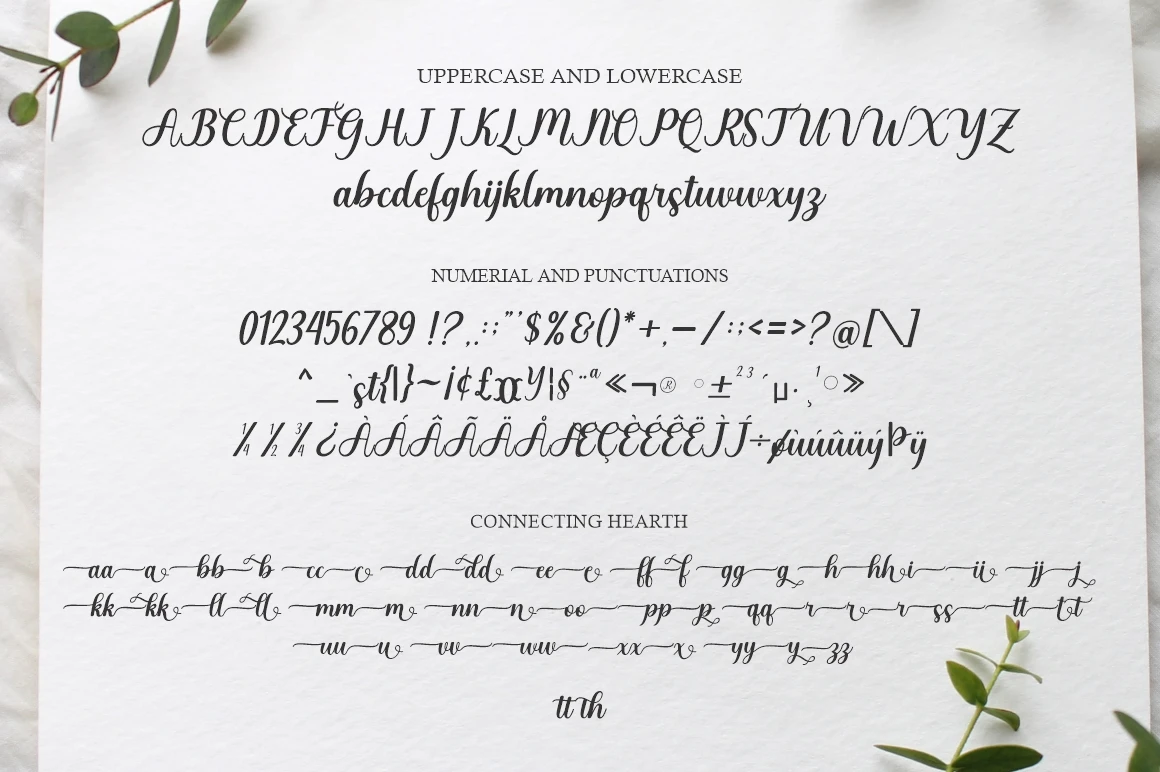 UPPERCASE AND LOWERCASE
ABCDEFGHIJKLMNOPQRSTUVWXYZ
abcdefghijklmnopqrstuvwxyz
NUMERIAL AND PUNCTUATIONS
0123456789 !?,.:;"'$%&()*+,–/:;<=>?@[\]
^_`st{|}~¡¢£¤¥¦§¨ª«¬®°±²³´µ·¸¹º»
¼½¾¿ÀÁÂÃÄÅÆÇÈÉÊËÌÍ÷øùúûüýÞÿ
CONNECTING HEARTH
aa a bb b cc c dd dd ee e ff f gg g h hh i ii jj j
kk kk ll ll mm m nn n oo pp p qq r r r ss tt t t
uu u vv ww xx x yy y zz
tt th